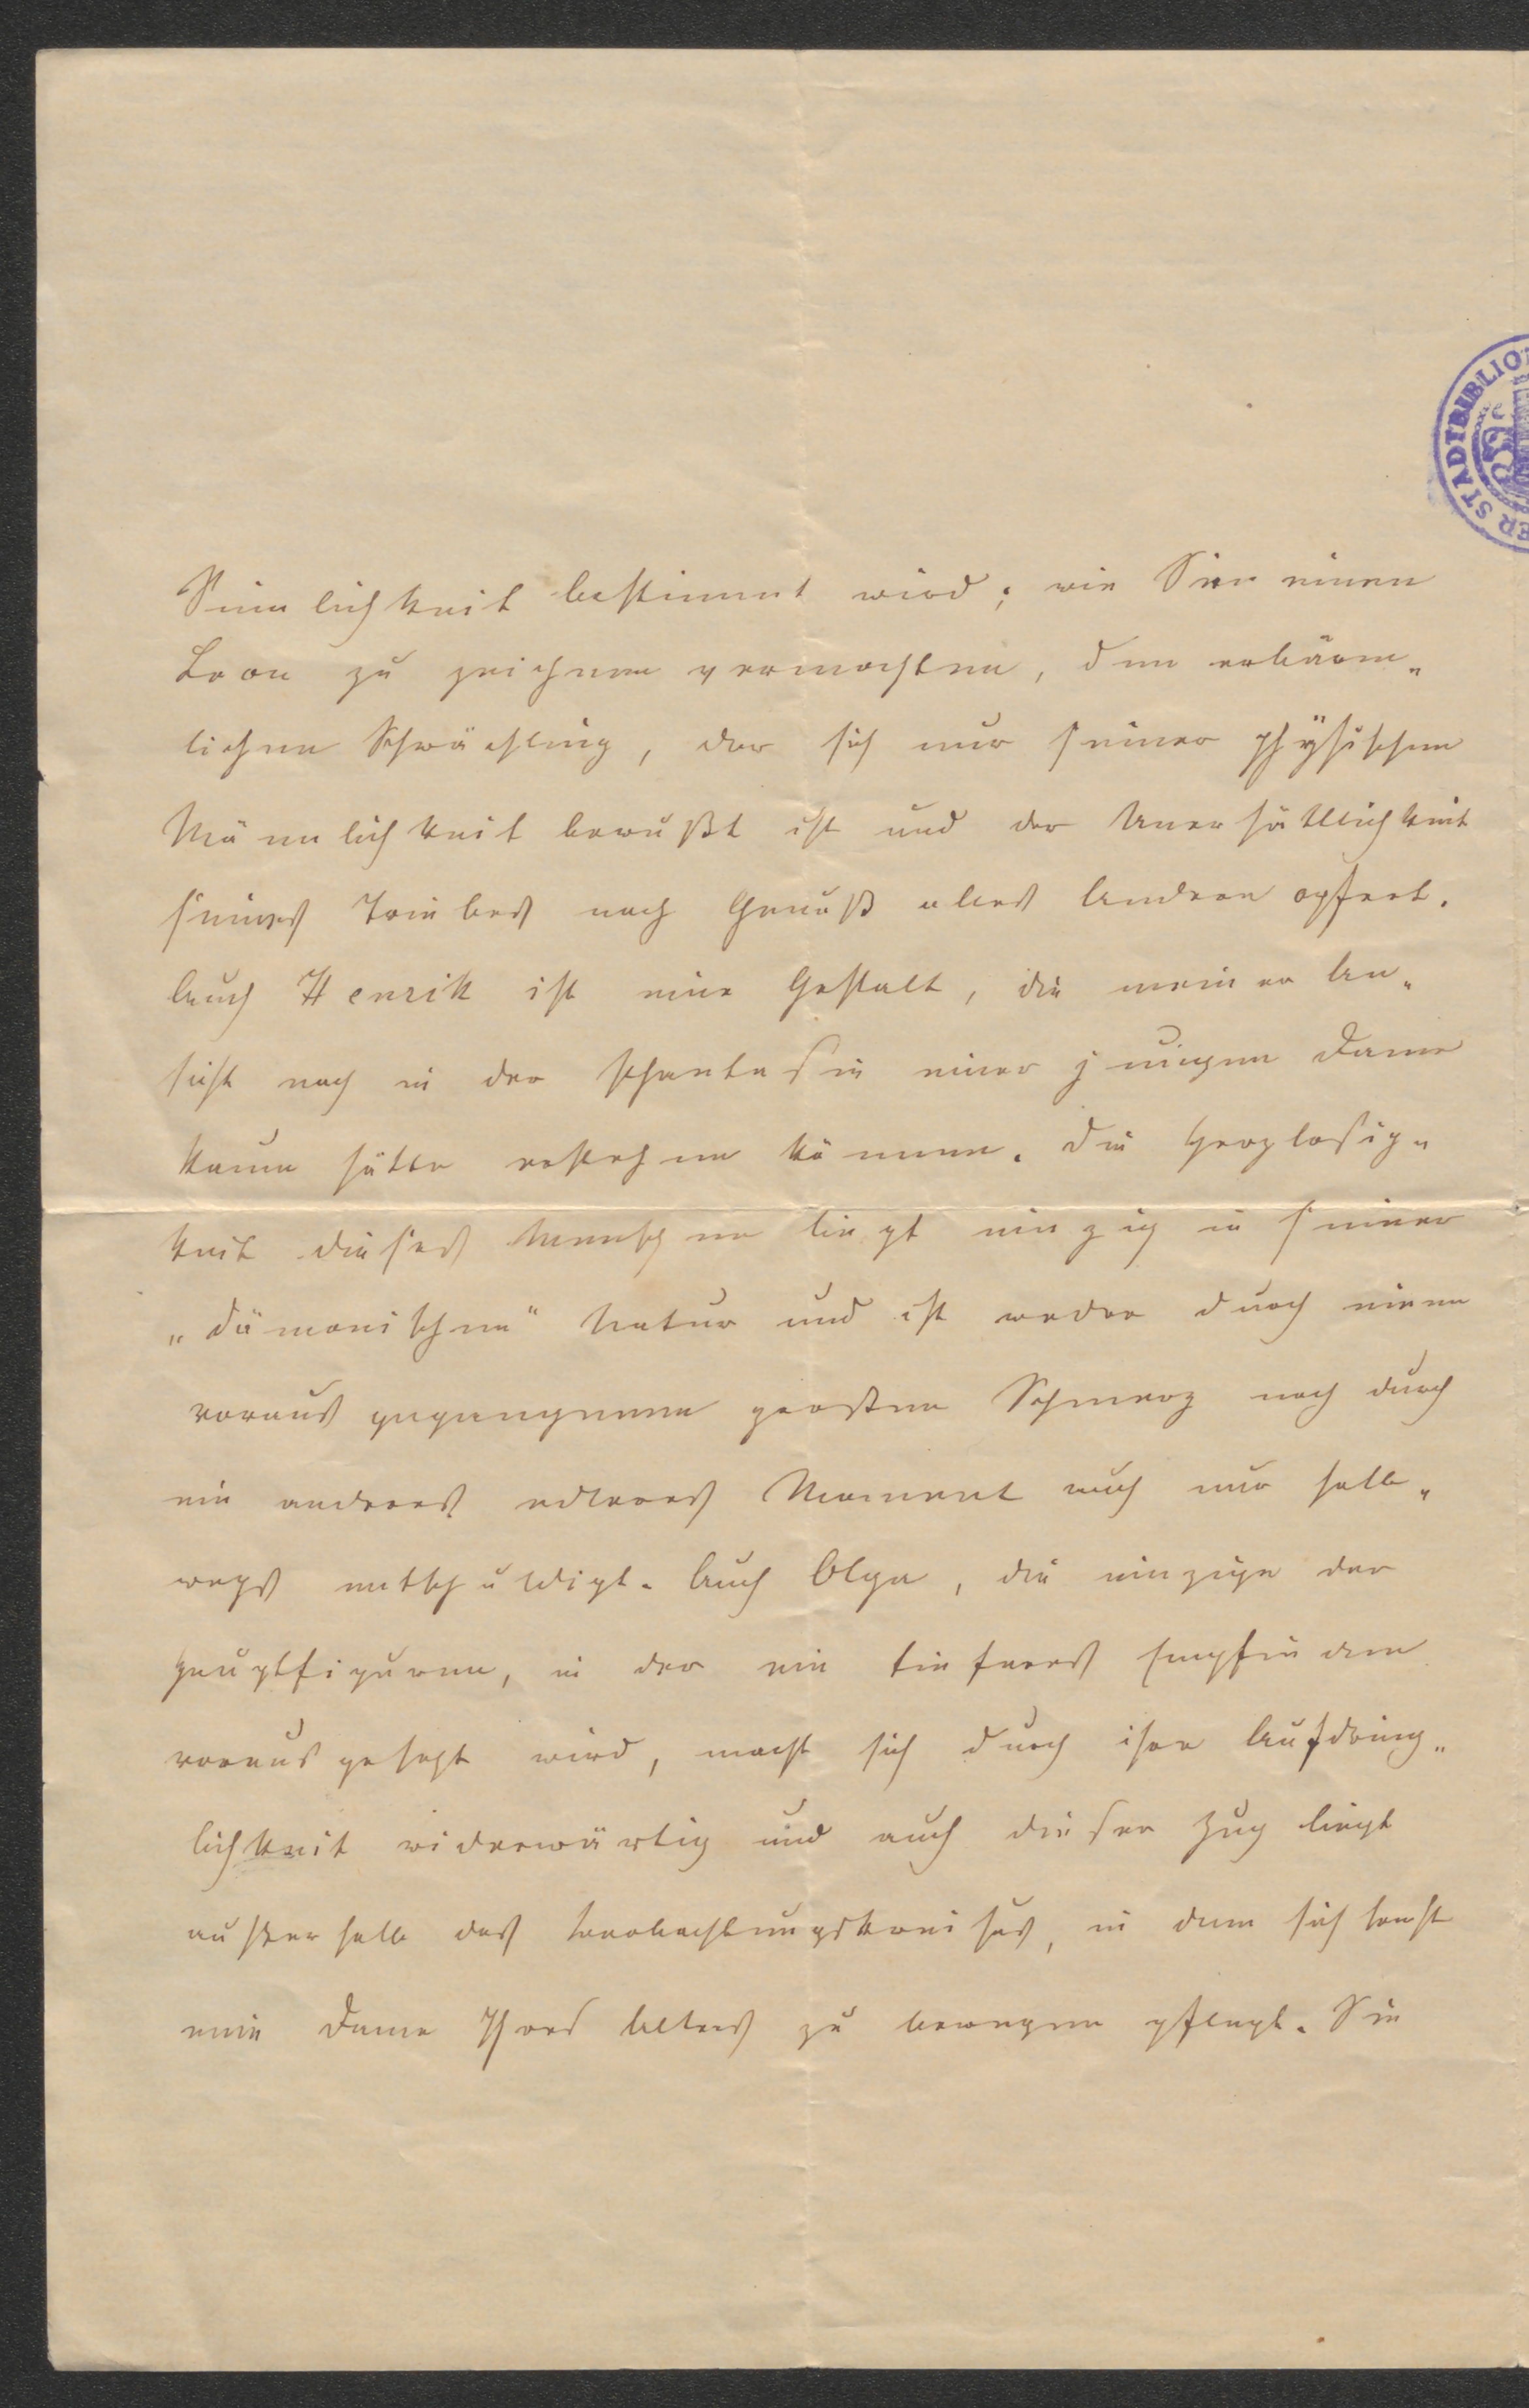 Sinnlichkeit bestimmt wird; wie Sie einen
Leon zu zeichnen vermochten, den erbärm„
lichen Schwächling, der sich nur seiner physischen
Männlichkeit bewußt ist und der Unersättlichkeit
seines Triebes nach Genuß alles Andere opfert.
Auch Henrik ist eine Gestalt, die meiner An„
sicht nach in der Phantasie einer jungen Dame
kaum hätte erstehen können. Die Herzlosig„
keit dieses Menschen liegt einzig in seiner
„dämonischen“ Natur und ist weder durch einen
vorausgegangenen großen Schmerz noch durch
ein anderes edleres Moment auch nur halb„
wegs entschuldigt. Auch Olga, die einzige der
Hauptfiguren, in der ein tieferes Empfinden
vorausgesetzt wird, macht sich durch ihre Aufdring„
lichkeit widerwärtig und auch dieser Zug liegt
außerhalb des Beobachtungskreises, in dem sich sonst
eine Dame Ihres Alters zu bewegen pflegt. Sie
STADTBIBLIO